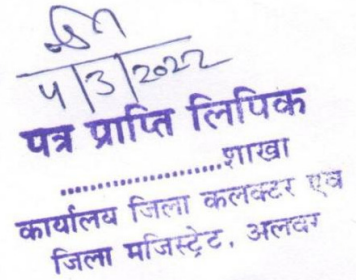 4/3/2022
पत्र प्राप्ति लिपिक
....................शाखा
कार्यालय जिला कलक्टर एव
जिला मजिस्ट्रेट, अलवर